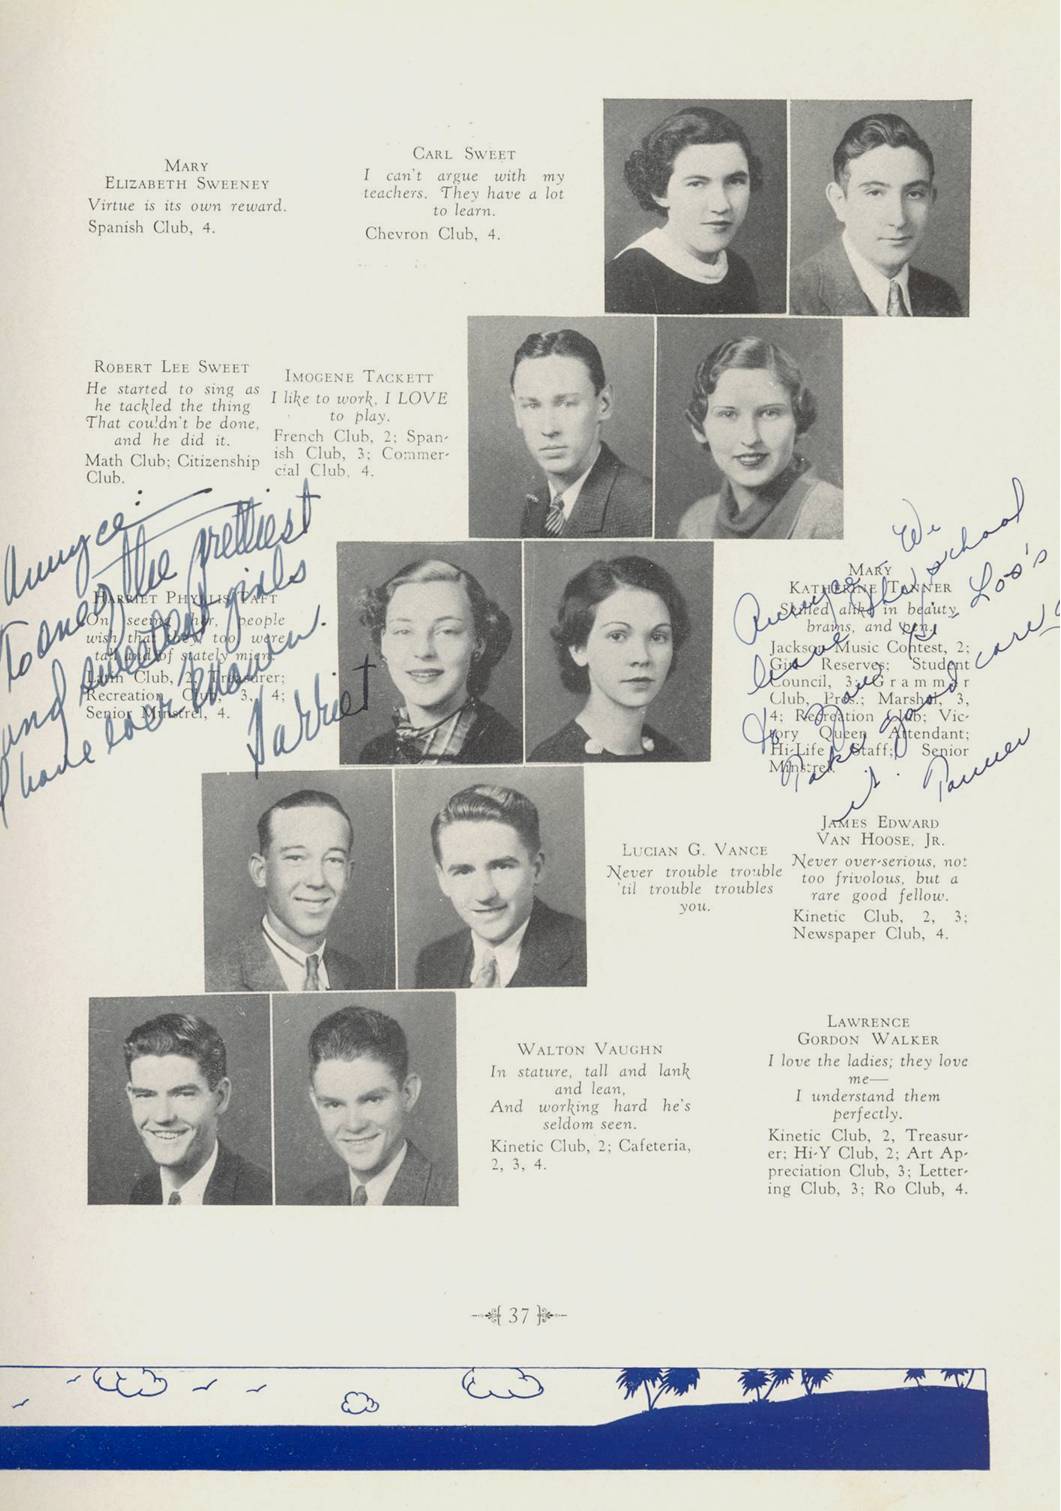 MARY
ELIZABETH SWEENEY
Virtue is its own reward.
Spanish Club, 4.
CARL SWEET
I can't argue with my
teachers. They have a lot
to learn.
Chevron Club, 4.
ROBERT LEE SWEET
He started to sing as
he tackled the thing
That couldn't be done,
and he did it.
Math Club; Citizenship
Club.
IMOGENE TACKETT
I like to work, I LOVE
to play.
French Club, 2; Span-
ish Club, 3; Commer-
cial Club, 4.
Annyce:
To one of the prettiest
and sweetest girls
I have ever known.
Harriet
HARRIET PHYLLIS TAFT
On seeing her, people
wish that they, too, were
tall and of stately mien.
Latin Club, 2, Treasurer;
Recreation Club, 3, 4;
Senior Minstrel, 4.
Annyce We
leave this school
to you
Take good care of
it. Tanner
MARY
KATHERINE TANNER
Skilled alike in beauty,
brains, and pen.
Jackson Music Contest, 2;
Girl Reserves; Student
Council, 3; Grammar
Club, Pres.; Marshal, 3,
4; Recreation Club; Vic-
tory Queen Attendant;
Hi-Life Staff; Senior
Minstrel.
LUCIAN G. VANCE
Never trouble trouble
'til trouble troubles
you.
JAMES EDWARD
VAN HOOSE, JR.
Never over-serious, not
too frivolous, but a
rare good fellow.
Kinetic Club, 2, 3;
Newspaper Club, 4.
WALTON VAUGHN
In stature, tall and lank
and lean,
And working hard he's
seldom seen.
Kinetic Club, 2; Cafeteria,
2, 3, 4.
LAWRENCE
GORDON WALKER
I love the ladies; they love
me—
I understand them
perfectly.
Kinetic Club, 2, Treasur-
er; Hi-Y Club, 2; Art Ap-
preciation Club, 3; Letter-
ing Club, 3; Ro Club, 4.
37